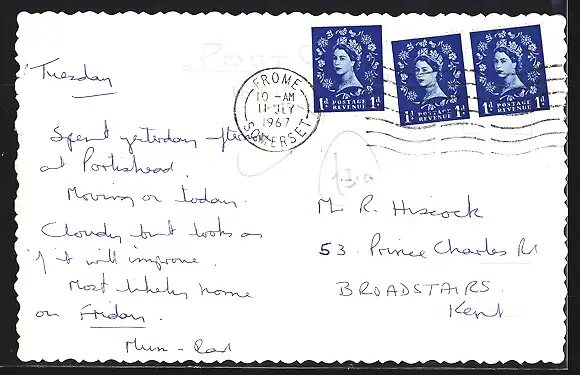 Tuesday
Spent yesterday afternoon
at Portishead.
Moving on today.
Cloudy but looks as
if it will improve.
Most likely home
on Friday.
Mum - Dad
FROME
10 - AM
11 JLY
1967
SOMERSET
1d POSTAGE REVENUE 1d
1d POSTAGE REVENUE 1d
1d POSTAGE REVENUE 1d
Mr R. Hiscock
53. Prince Charles Rd
BROADSTAIRS.
Kent